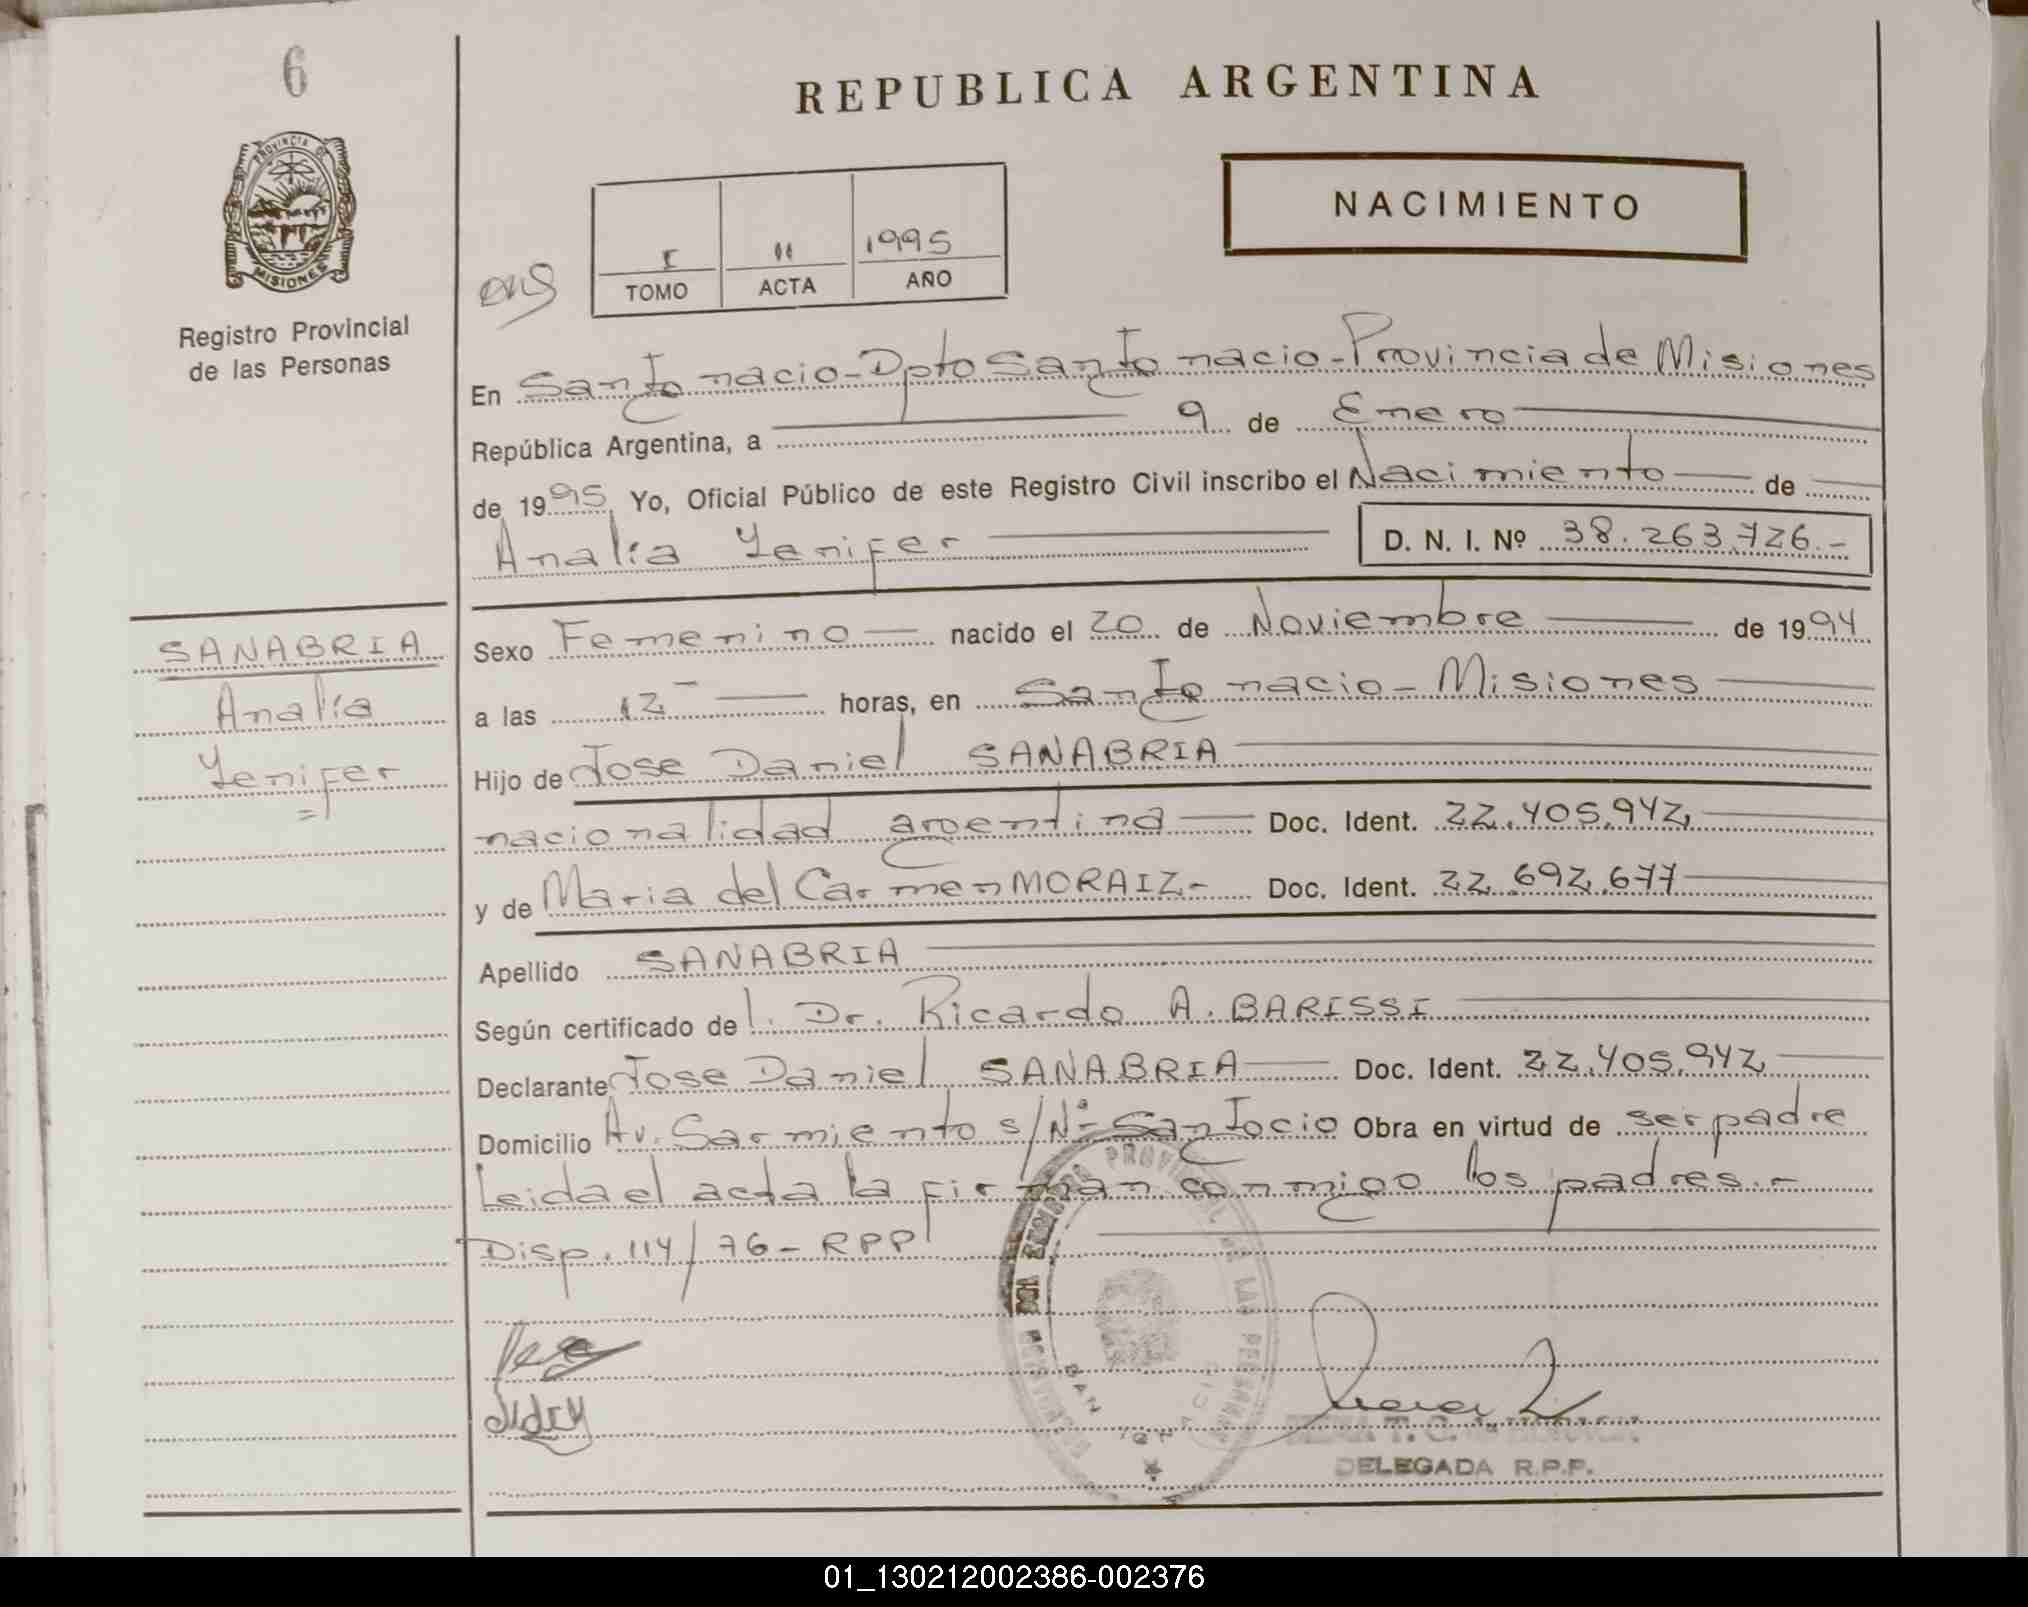 6
REPUBLICA ARGENTINA
NACIMIENTO
PROVINCIA DE
MISIONES
Registro Provincial
de las Personas
I 11 1995
TOMO ACTA AÑO
En San Ignacio - Dpto San Ignacio - Provincia de Misiones
República Argentina, a 9 de Enero
de 1995, Yo, Oficial Público de este Registro Civil inscribo el Nacimiento de
Analía Yenifer D. N. I. Nº 38.263.726.-
SANABRIA
Analía
Yenifer
Sexo Femenino nacido el 20 de Noviembre de 1994
a las 12 horas, en San Ignacio - Misiones
Hijo de Jose Daniel SANABRIA
nacionalidad argentina Doc. Ident. 22.405.942,
y de Maria del Carmen MORAIZ.- Doc. Ident. 22.692.677
Apellido SANABRIA
Según certificado del. Dr. Ricardo A. BARISSI
Declarante Jose Daniel SANABRIA Doc. Ident. 22.405.942,
Domicilio Av. Sarmiento s/Nº San Igcio Obra en virtud de ser padre
Leida el acta la firman conmigo los padres.-
Disp. 114/76 - RPP
REGISTRO PROVINCIAL DE LAS PERSONAS
DELEGADA R.P.P.
01_130212002386-002376